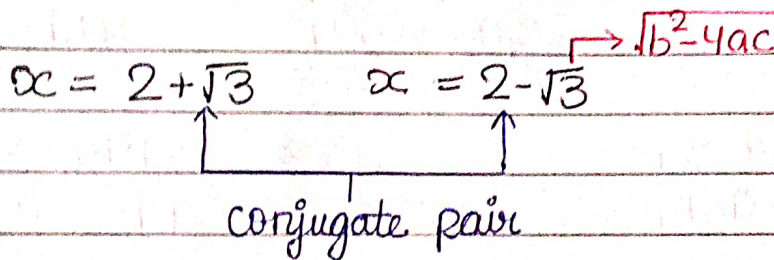 √b²-4ac
x = 2+√3 x = 2-√3
conjugate pair